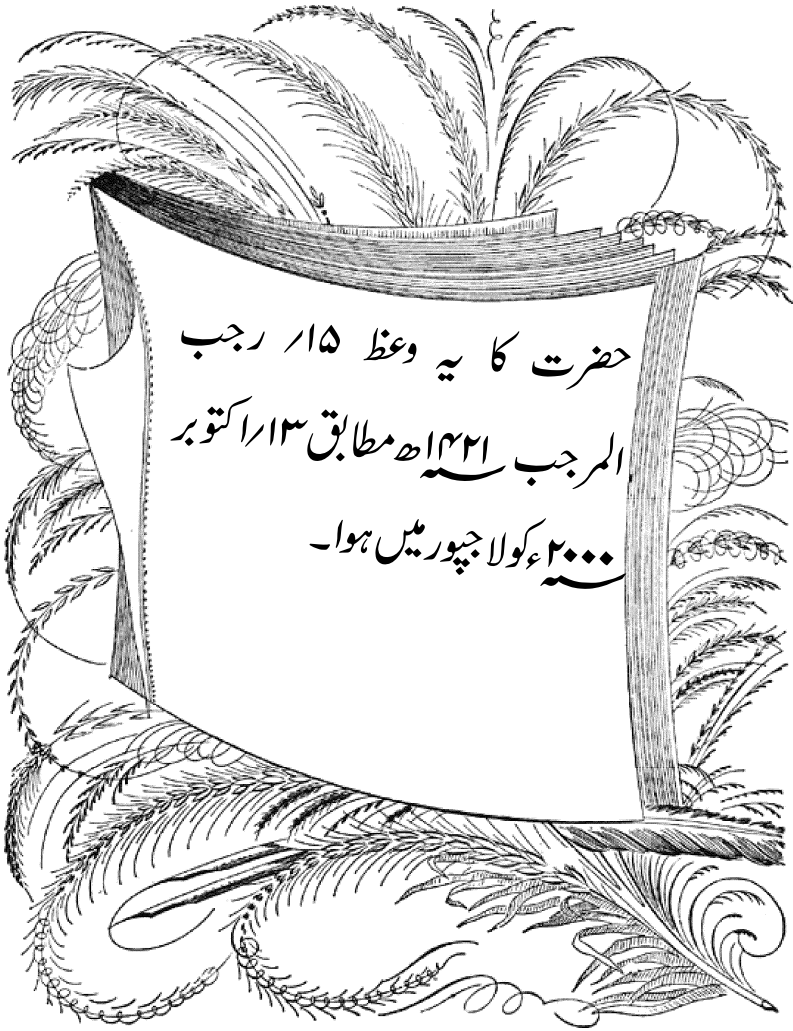 حضرت کا یہ وعظ ۱۵/ رجب
المرجب ۱۴۲۱؁ھ مطابق ۱۳/اکتوبر
۲۰۰۰؁ء کو لاجپور میں ہوا۔